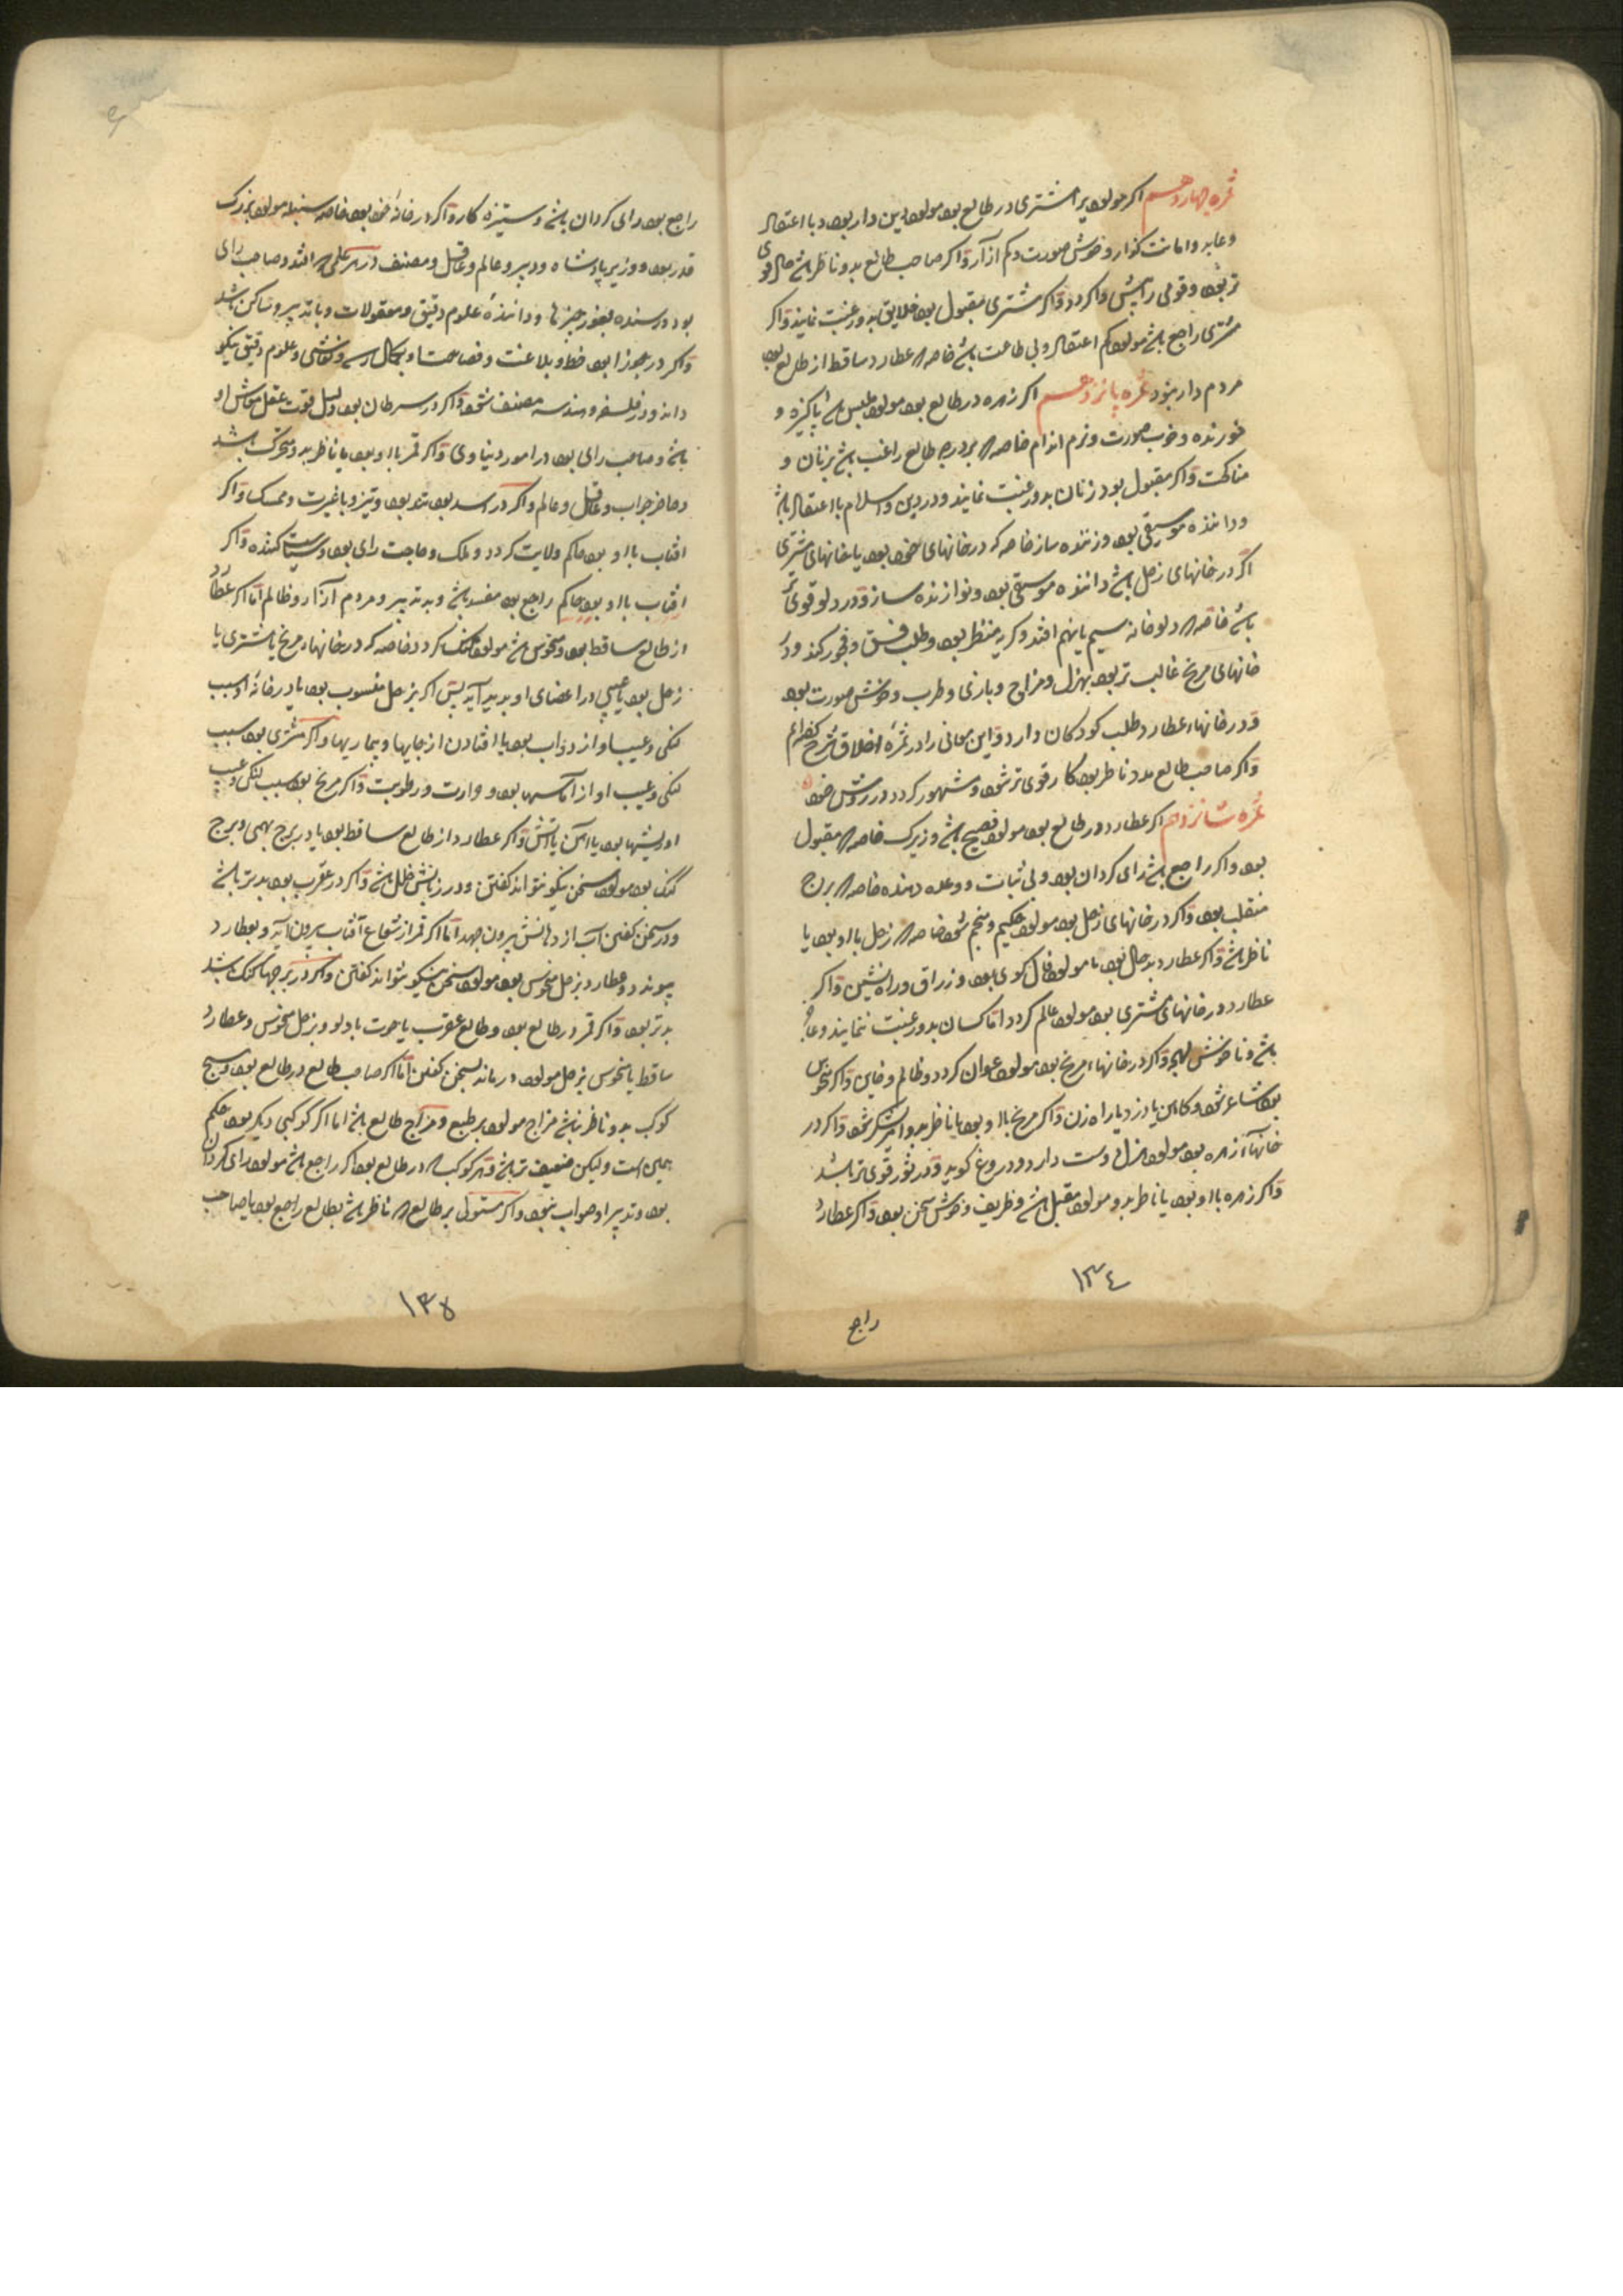 ثمره چهاردهم اکر مولود را مشتری در طالع بود مولود دین دار بود و با اعتقاد
و عابد و امانت کزار و خوش صورت و کم آزار و اکر صاحب طالع بدو ناظر باشد حال قوی
تر بود و قومی را پیش وا کردد و اکر مشتری مقبول بود خلایق بدو رغبت نمایند و اکر
مشتری راجع باشد مولود کم اعتقاد و بی طاعت باشد خاصه عطارد ساقط از طالع بود
مردم دار نبود ثمره پانزدهم اکر زهره در طالع بود مولود ملبس پاکیزه و
خورنده و خوب صورت و نرم اندام خاصه بر درجه طالع راغب باشد بزنان و
مناکحت و اکر مقبول بود زنان بدو رغبت نمایند و در دین و اسلام با اعتقاد باشد
و داننده موسیقی بود و زننده ساز خاصه که در خانهای خود بود یا خانهای مشتری
اکر در خانهای زحل باشد داننده موسیقی بود و نوازنده ساز و در دلو قوی تر
باشد خاصه دلو خانه سیم یا پنجم افتد و کریه منظر بود و طلب فسق و فجور کند و در
خانهای مریخ غالب تر بود بهزل و مزاح و بازی و طرب و خوش صورت بود
و در خانهاء عطارد طلب کودکان دارد و این معانی را در ثمره اخلاق شرح کفته ایم
و اکر صاحب طالع بدو ناظر بود کار قوی تر شود و مشهور کردد در روش خود
ثمره شانزدهم اکر عطارد در طالع بود مولود فصیح باشد و زیرک خاصه مقبول
بود و اکر راجع باشد رای کردان بود و بی ثبات و وعده دهنده خاصه برج
منقلب بود و اکر در خانهای زحل بود مولود حکیم و منجم شود خاصه زحل با او بود یا
ناظر باشد و اکر عطارد بد حال بود مولود فال کوی بود و زراق و راه نشین و اکر
عطارد در خانهای مشتری بود مولود عالم کردد اما کسان بدو رغبت ننمایند و
باشد و ناخوش لهجه و اکر در خانهاء مریخ بود مولود عوان کردد و ظالم و خاین و اکر منحوس
بود شاعر شود و کاهن یا دزد یا راه زن و اکر مریخ با او بود یا ناظر بدو امیر لشکر شود و اکر در
خانهاء زهره بود مولود هزل دوست دارد و دروغ کوید و در ثور قوی تر باشد
و اکر زهره با او بود یا ناظر بدو مولود مقبل باشد و ظریف و خوش سخن بود و اکر عطارد
۱۳٤
راجع
راجع بود رای کردان باشد و ستیزه کار و اکر در خانه خود بود خاصه سنبله مولود بزرک
قدر بود و وزیر پادشاه و دبیر و عالم و عاقل و مصنف در هر علمی افتد و صاحب رای
بود و رسنده بغور چیزها و داننده علوم دقیق و معقولات و با تدبیر و ساکن باشد
و اکر در جوزا بود خط و بلاغت و فصاحت و نقاشی و علوم دقیق نیکو
داند و در فلسفه و هندسه مصنف شود و اکر در سرطان بود دلیل قوت عقل معاش او
باشد و صاحب رای بود در امور دنیاوی و اکر قمر با او بود یا ناظر بدو متحرک باشد
و حاضر جواب و عاقل و عالم و اکر در اسد بود تند بود و تیز و با غیرت و ممسک و اکر
افتاب با او بود حاکم ولایت کردد و ملک و صاحب رای بود و سیاست کننده و اکر
افتاب با او بود حاکم راجع بود مفسد باشد و بد تدبیر و مردم آزار و ظالم اما اکر عطارد
از طالع ساقط بود و منحوس باشد مولود کنک کردد خاصه که در خانهاء مریخ یا مشتری یا
زحل بود یا عیبی در اعضای او پدید آید پس اکر بزحل منسوب بود یا در خانه او سبب
لنکی و عیب او از دواب بود یا افتادن از جایها و بیماریها و اکر مشتری بود سبب
لنکی و عیب او از آماسها بود و حرارت و رطوبت و اکر مریخ بود سبب لنکی و عیب
او ریشها بود یا آهن یا آتش و اکر عطارد از طالع ساقط بود یا در برج بهیمی و برج
کنک بود مولود سخن نیکو نتواند کفتن و در زبانش خلل باشد و اکر در عقرب بود بدتر باشد
و در سخن کفتن آب از دهانش بیرون جهد اما اکر قمر از شعاع آفتاب بیرون آید و بعطارد
پیوندد و عطارد بزحل منحوس بود مولود سخن نیکو نتواند کفتن و اکر در برجهاء کنک باشد
بدتر بود و اکر قمر در طالع بود و طالع عقرب یا حوت یا دلو و بزحل منحوس و عطارد
ساقط یا منحوس بزحل مولود درماند بسخن کفتن اما اکر صاحب طالع در طالع بود و هیچ
کوکب بدو ناظر نباشد مزاج مولود بر طبع و مزاج طالع باشد اما اکر کوکبی دیکر بود حکم
همین است ولیکن ضعیف تر باشد و هر کوکب در طالع بود اکر راجع باشد مولود رای کردان
بود و تدبیر او صواب نبود و اکر مستولی بر طالع ناظر باشد بطالع راجع بود یا صاحب
۱۳۵